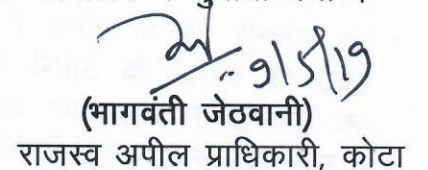 9/5/19
(भागवंती जेठवानी)
राजस्व अपील प्राधिकारी, कोटा